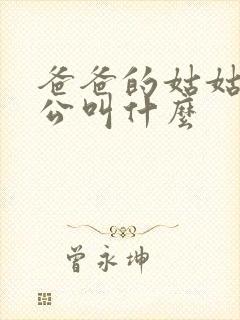 爸爸的姑姑
公叫什麼
曾永坤